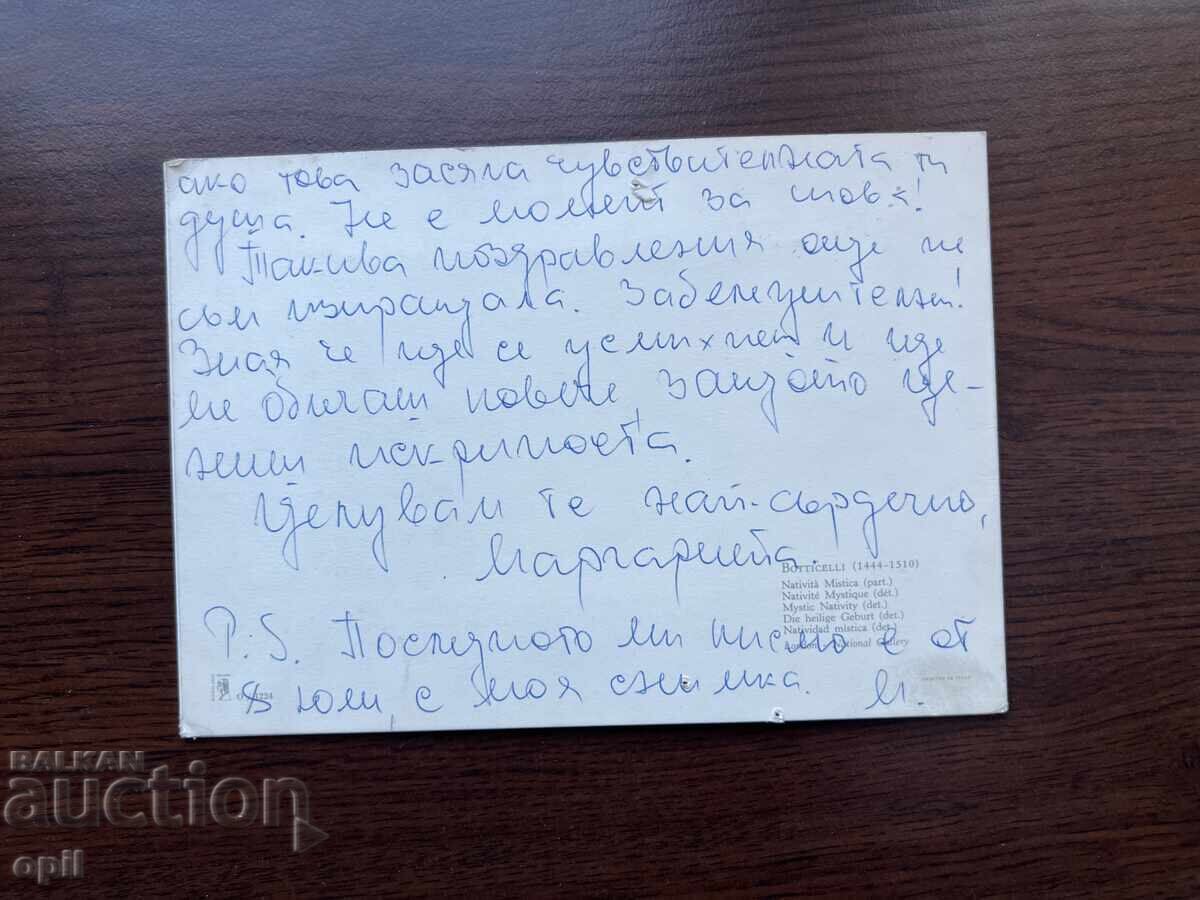 ако това засяга чувствителната ти
душа. Не е момент за това!
Такива поздравления още не
съм изпращала. Забележителен!
Зная че ще се усмихнеш и ще
ме обичаш повече, защото це-
ниш искриността.
Целувам те най-сърдечно,
Маргарита.
BOTTICELLI (1444-1510)
Natività Mistica (part.)
Nativité Mystique (dét.)
Mystic Nativity (det.)
Die heilige Geburt (det.)
Natividad mística (det.)
London, National Gallery
P.S. Последното ми писмо е от
8 юли, с моя снимка. М.
BALKAN
auction
opil